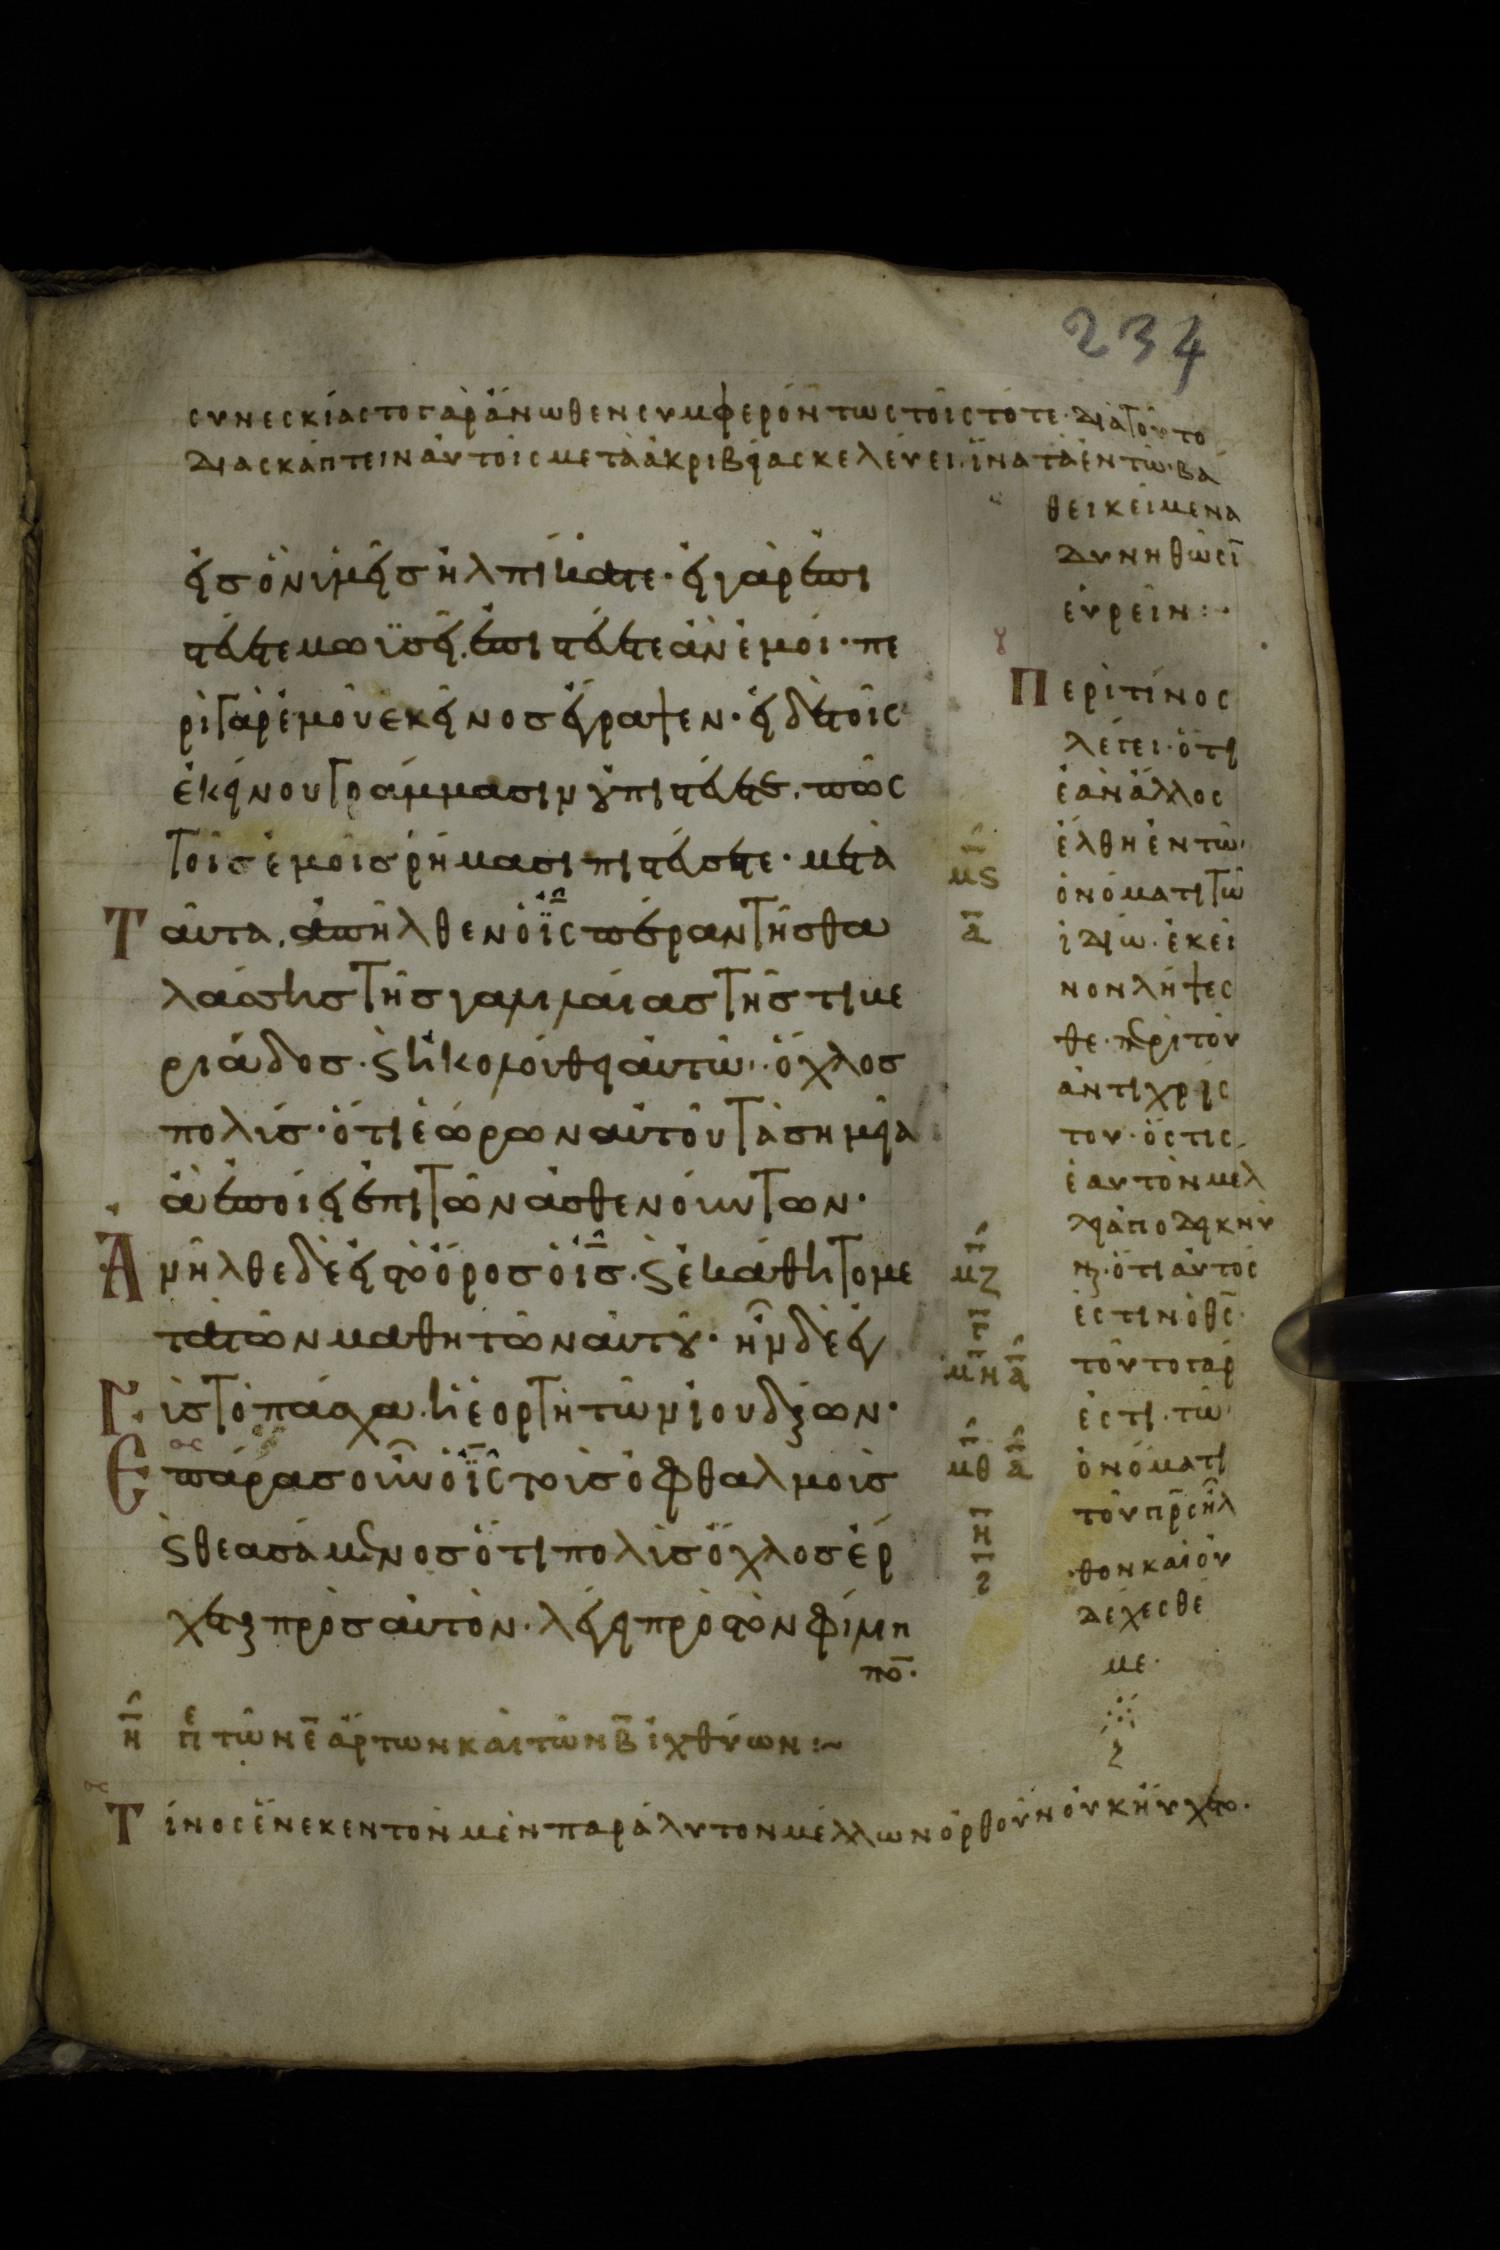 234
συνεσκίαστο γὰρ ἄνωθεν συμφερόντως τοῖς τότε· διὰ τοῦτο
διασκάπτειν αὐτοῖς μετὰ ἀκριβείας κελεύει. ἵνα τὰ ἐν τῶ βά
θει κείμενα
δυνηθῶσῑ
εὑρεῖν:·
εἰς ὃν ὑμεῖς ἠλπίκατε· εἰ γὰρ ἐπι
στεύετε μωϋσεῖ. ἐπιστεύετε ἂν ἐμοί· πε
ρὶ γὰρ ἐμοῦ ἐκεῖνος ἔγραψεν· εἰ δὲ τοῖς
ἐκείνου γράμμασιν οὐ πιστεύετε. πῶς
τοῖς ἐμοῖς ῥήμασι πιστεύσετε· μετὰ
Ταῦτα. ἀπῆλθεν ὁ ι̅ς̅ πέραν τῆς θα
λάσσης τῆς γαλιλαίας τῆς τιβε
ριάδος. ϗ ἠκολούθει αὐτῶ· ὄχλος
πολύς· ὅτι ἑώρων αὐτοῦ τὰ σημεῖα
ἃ ἐποίει ἐπὶ τῶν ἀσθενούντων·
Ἀνῆλθε δὲ εἰς τὸ ὄρος ὁ ι̅ς̅. ϗ ἐκάθητο με
τὰ τῶν μαθητῶν αὐτοῦ· ἦν δὲ ἐγ
Γὺς τὸ πάσχα. ἡ ἑορτὴ τῶν ἰουδαίων·
Ἐπάρας οὖν ὁ ι̅ς̅ τοὺς ὀφθαλμοὺς
ϗ θεασάμενος ὅτι πολὺς ὄχλος ἔρ
χεται πρὸς αὐτὸν. λέγει πρὸς τὸν φίλιπ
πο̅·
μς
α
μζ
ι
μη α
μθ α
η
Περὶ τίνος
λέγει· ὅτι
ἐὰν ἄλλος
ἔλθη ἐν τῶ
ὀνόματι τῶ
ἰδίω. ἐκεῖ
νον λήψεσ
θε. περὶ τοῦ
ἀντιχρίσ
του. ὅστις
ἑαυτὸν μέλ
λει ἀποδεικνύ
ναι. ὅτι αὐτός
ἐστιν ὁ θ̅ς̅·
τοῦτο γάρ
ἐστι. τῶ
ὀνόματι
τοῦ π̅ρ̅ς ἦλ
θον καὶ οὐ
δέχεσθέ
με·
η πε τῶν ε̅ ἄρτων καὶ τῶν β̅ ἰχθύων:~
Τίνος ἕνεκεν τὸν μὲν παράλυτον μέλλων ὀρθοῦν οὐκ ηὔχετο·